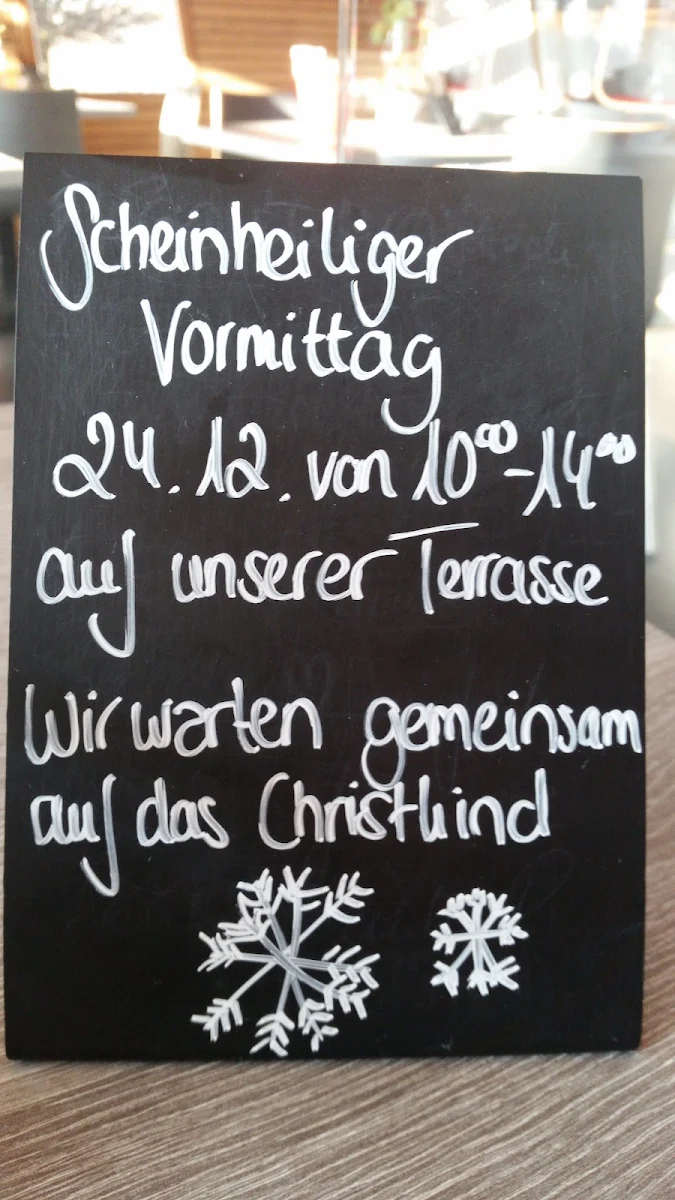 Scheinheiliger
Vormittag
24.12. von 10⁰⁰-14⁰⁰
auf unserer Terrasse
Wir warten gemeinsam
auf das Christkind